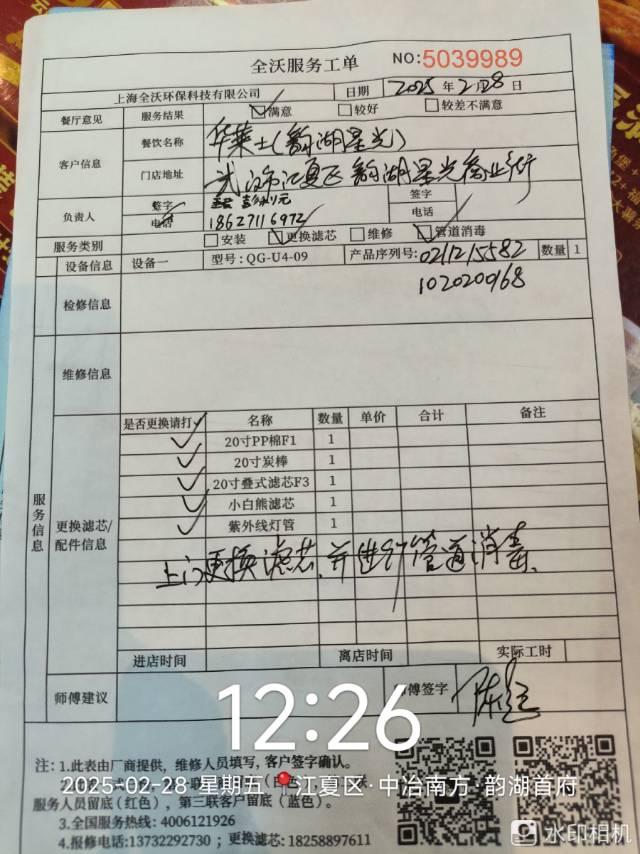 全沃服务工单
NO:5039989
上海全沃环保科技有限公司 日期 2025年2月28日
餐厅意见 服务结果 满意 较好 较差不满意
客户信息 餐饮名称 华莱士(韵湖星光)
门店地址 武汉市江夏区韵湖星光商业街
负责人 签字 签字
电话 18627116972 电话
服务类别 安装 更换滤芯 维修 管道消毒
设备信息 设备一 型号:QG-U4-09 产品序列号: 0211215582 数量 1
1020200168
检修信息
维修信息
服务信息
更换滤芯/配件信息
是否更换请打✓ 名称 数量 单价 合计 备注
✓ 20寸PP棉F1 1
✓ 20寸炭棒 1
✓ 20寸叠式滤芯F3 1
✓ 小白熊滤芯 1
✓ 紫外线灯管 1
上门更换滤芯,并进行管道消毒、
进店时间 离店时间 实际工时
师傅建议 师傅签字
12:26
注:1.此表由厂商提供,维修人员填写,客户签字确认。
2025-02-28 星期五 江夏区·中冶南方·韵湖首府
服务人员留底(红色),第三联客户留底(蓝色)。
3.全国服务热线:4006121926
4.报修电话:13732292730;更换滤芯:18258897611
水印相机